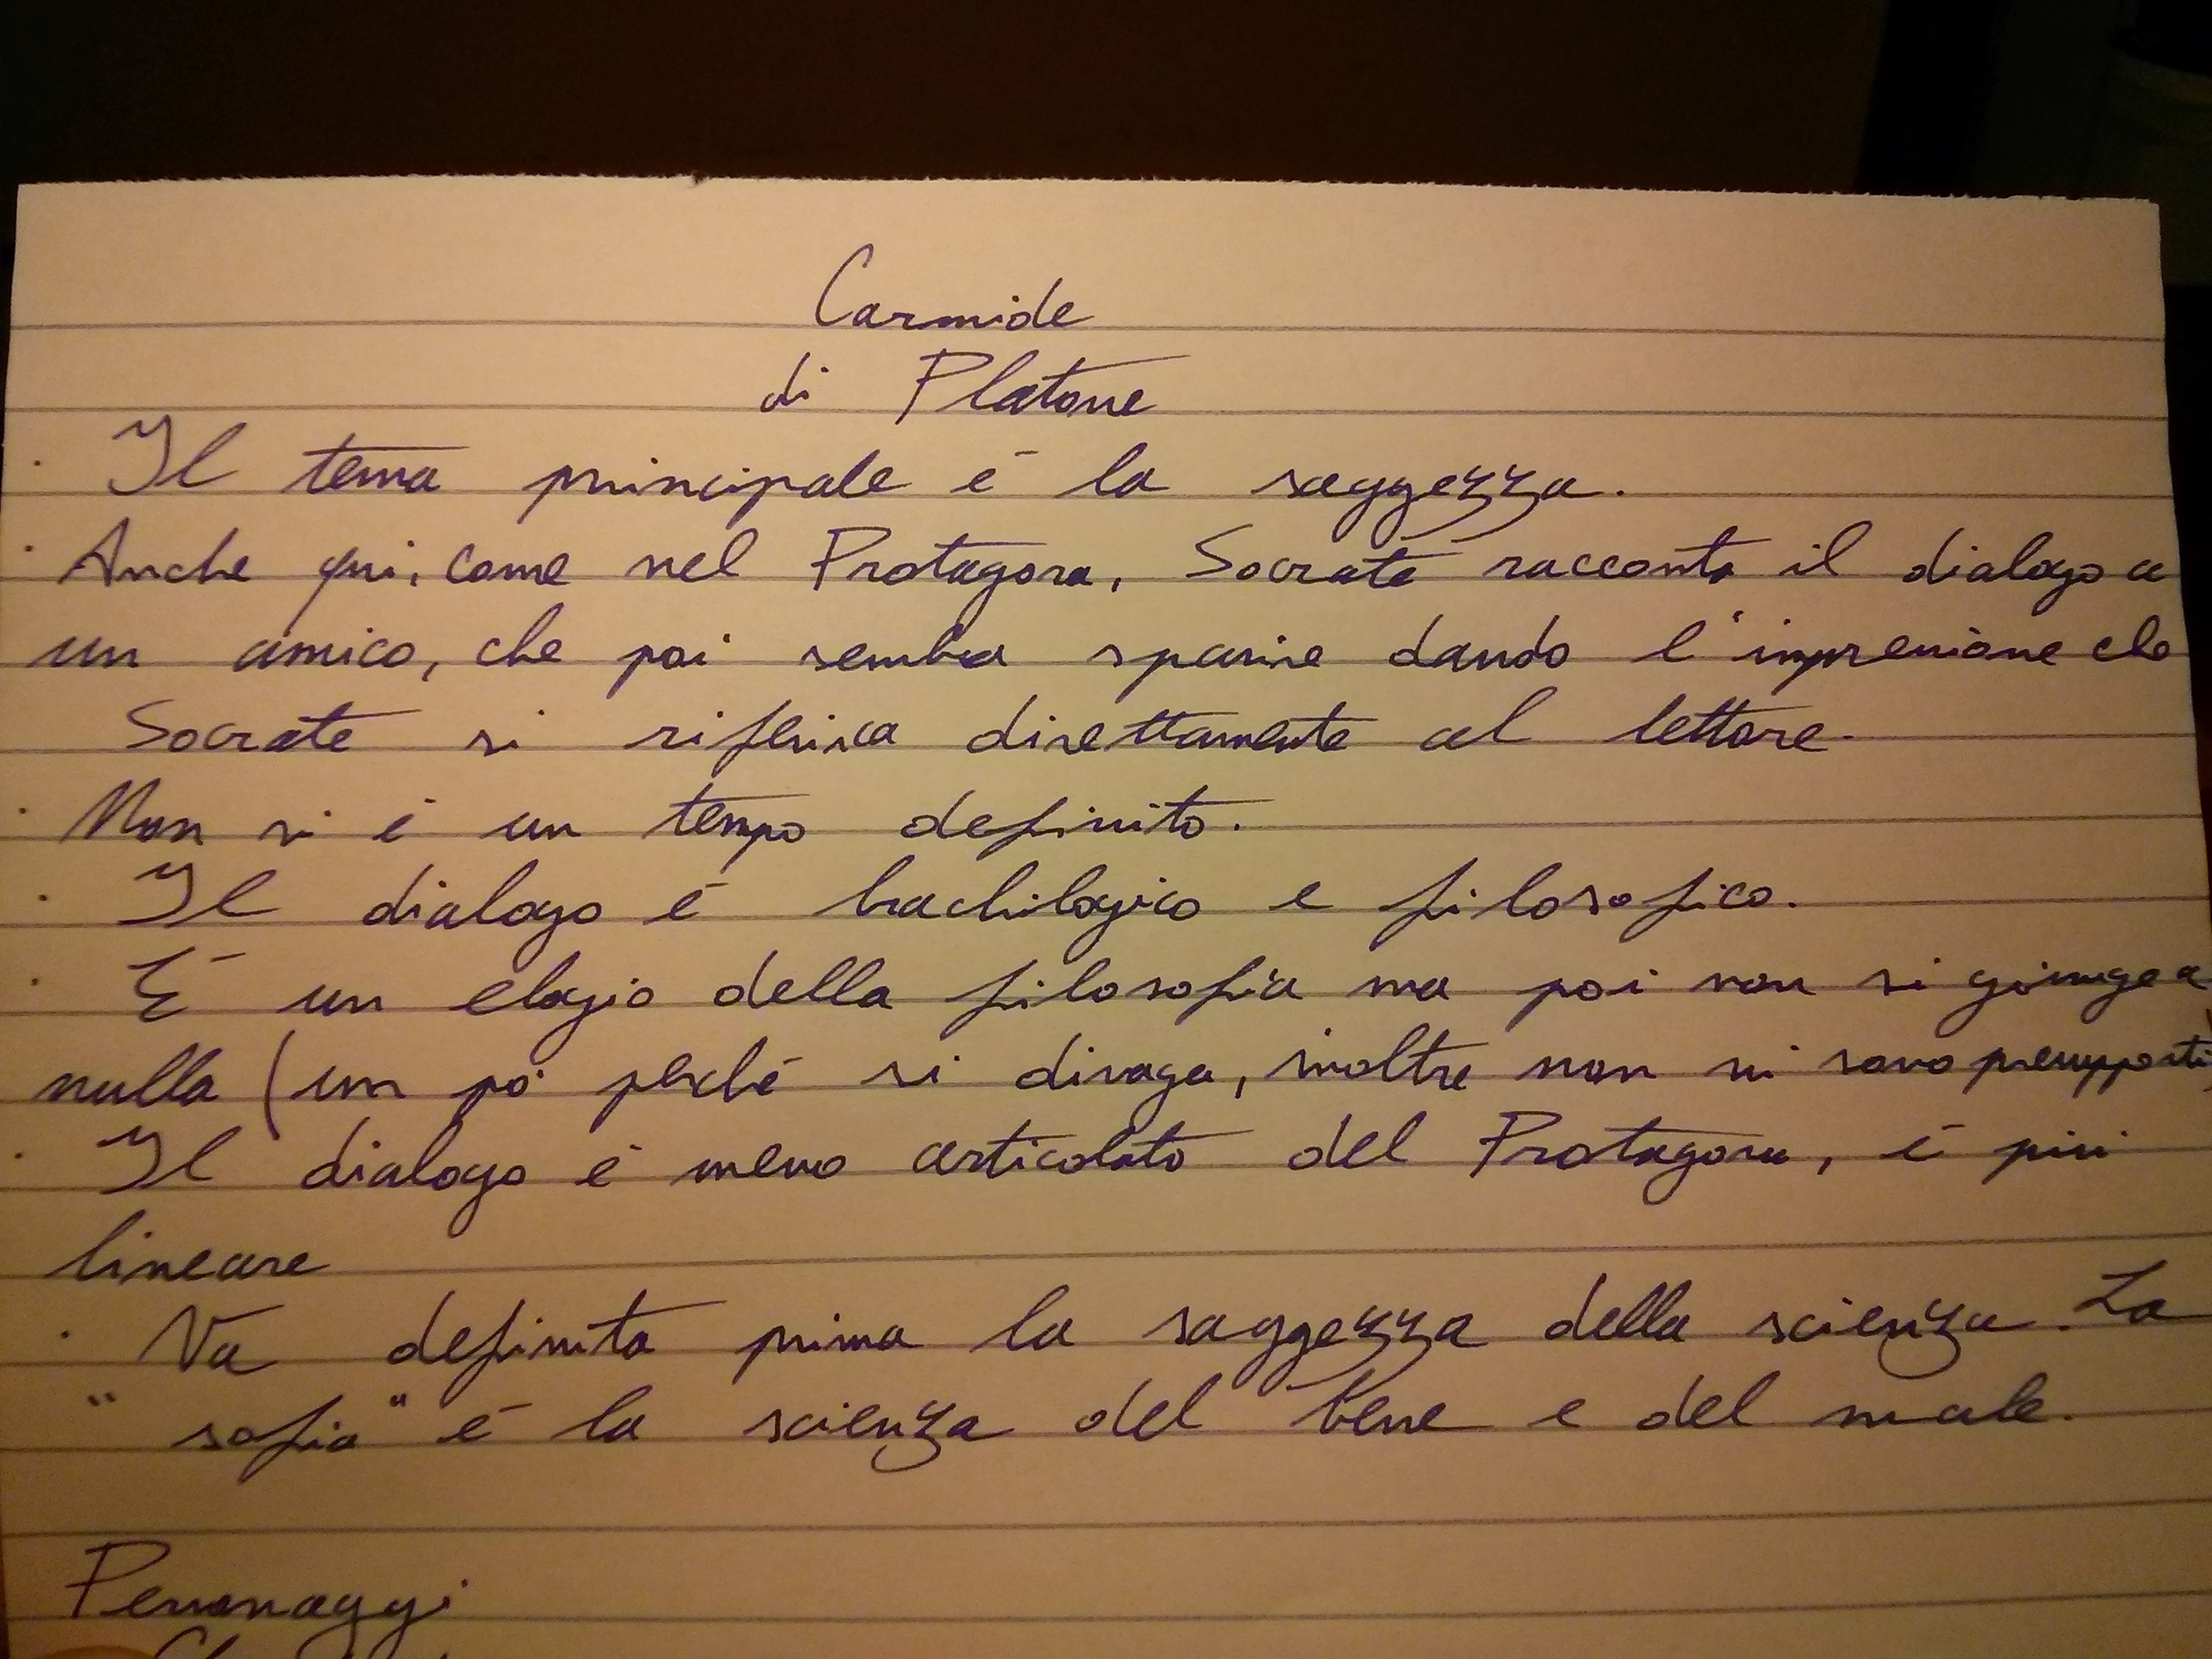 Carmide
di Platone
· Il tema principale è la saggezza.
· Anche qui, come nel Protagora, Socrate racconta il dialogo a
un amico, che poi sembra sparire dando l'impressione che
Socrate si riferisca direttamente al lettore.
· Non vi è un tempo definito.
· Il dialogo è brachilogico e filosofico.
· È un elogio della filosofia ma poi non si giunge a
nulla (un po' perché si divaga, inoltre non vi sono presupposti)
· Il dialogo è meno articolato del Protagora, è più
lineare
· Va definita prima la saggezza della scienza. La
"sofia" è la scienza del bene e del male.
Personaggi